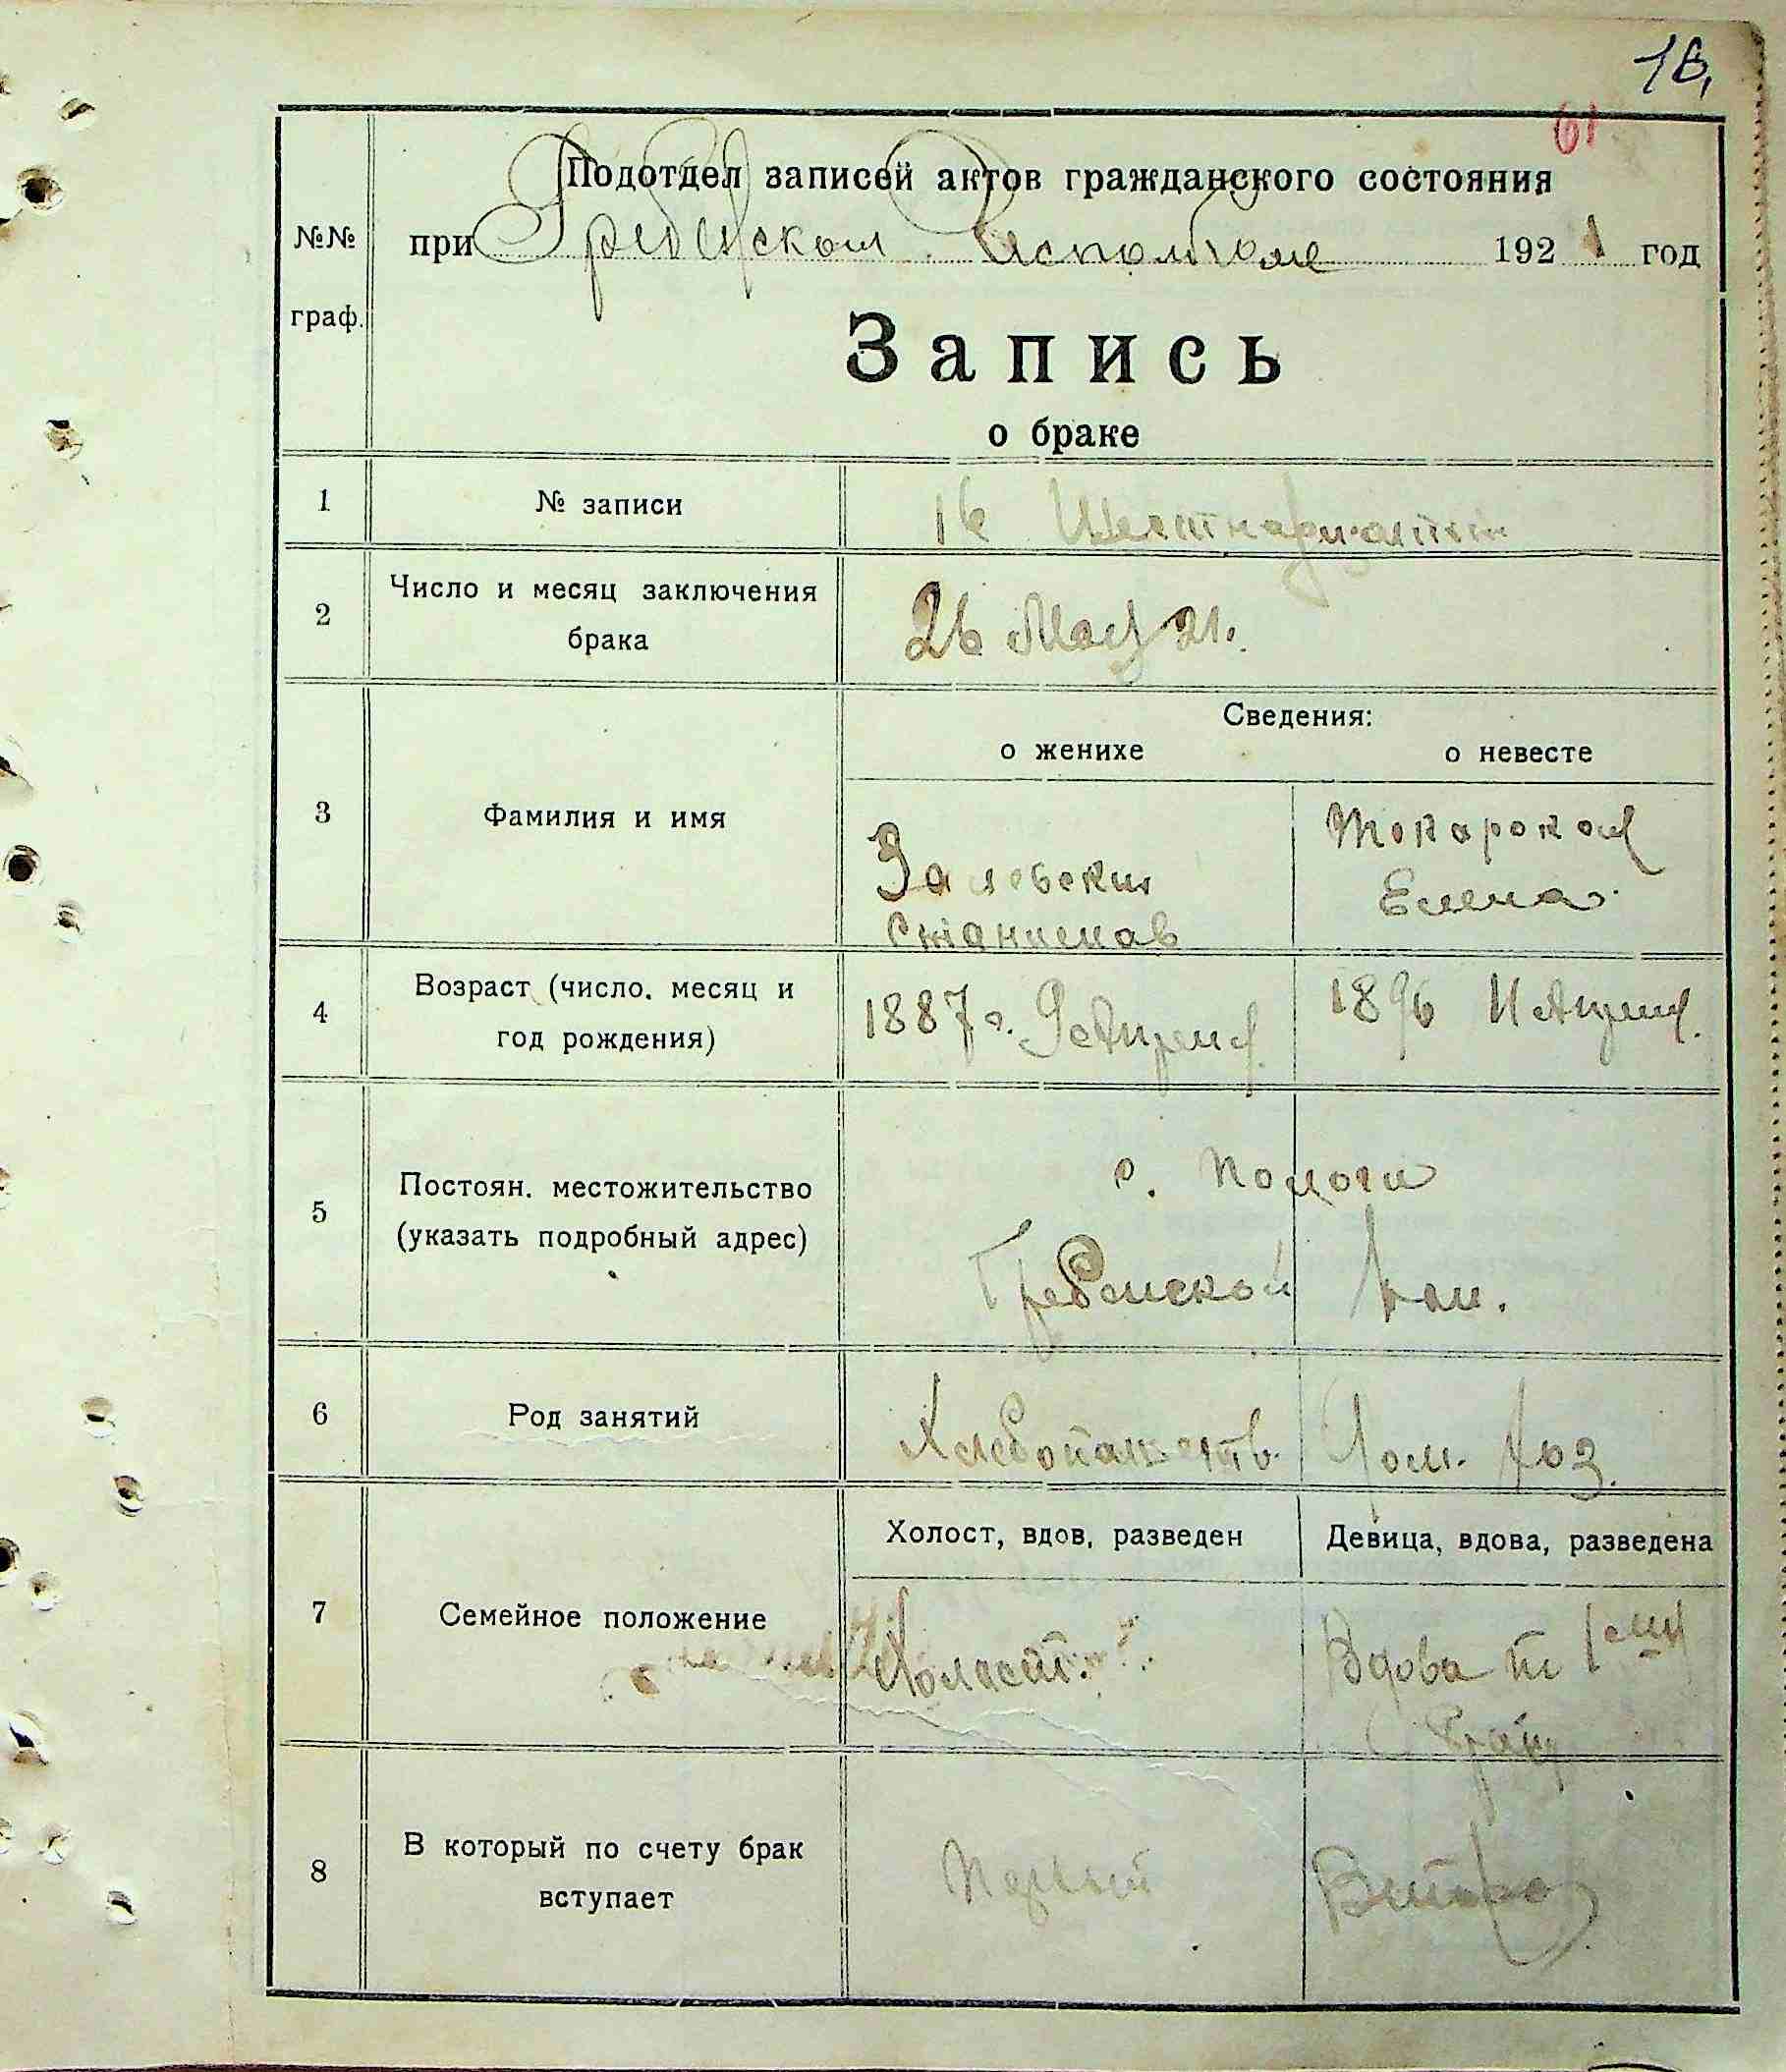 18,
61
Подотдел записей актов гражданского состояния
№№ при Исполкоме 1921 год
граф.
Запись
о браке
1 № записи 16
2 Число и месяц заключения 26 Мая 21.
брака
Сведения:
о женихе о невесте
3 Фамилия и имя Токарская
Елена
Станислав
4 Возраст (число, месяц и 1887 г. 1896
год рождения)
с. Пологи
5 Постоян. местожительство
(указать подробный адрес)
Гребенской вол.
6 Род занятий Хлебопашеств. Дом. хоз.
Холост, вдов, разведен Девица, вдова, разведена
7 Семейное положение Холост. Вдова
8 В который по счету брак Первый
вступает